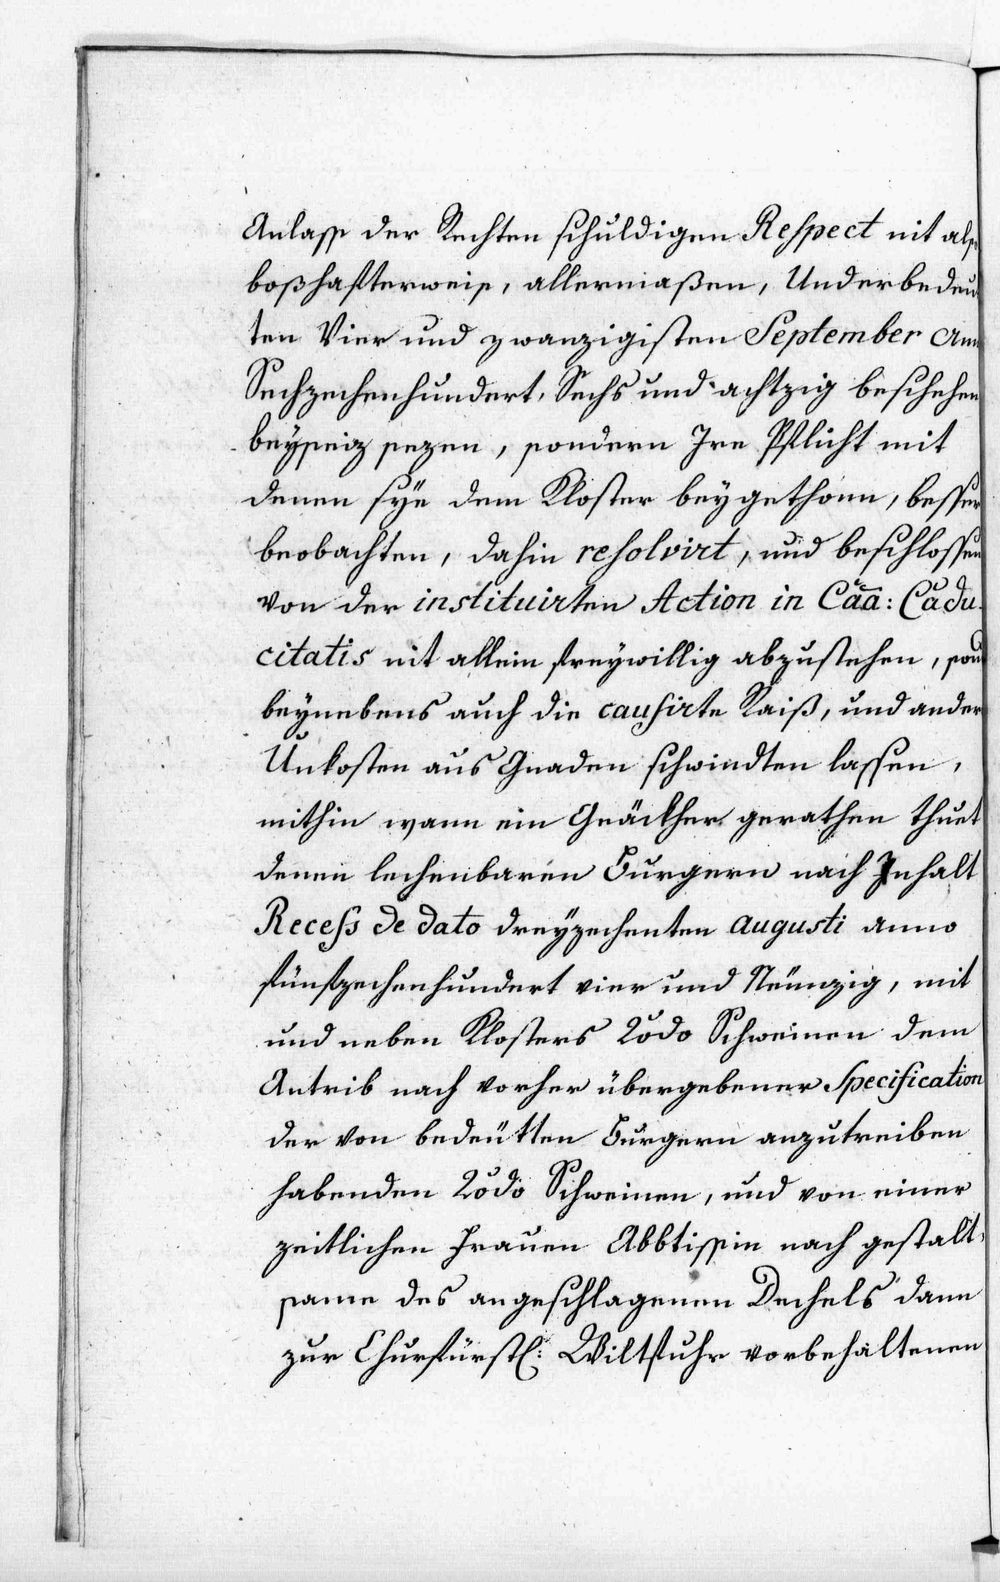 Anlass der Rechten schuldigen Respect nit als
boßhafterweis, allermaßen, Underbedeu
ten Vier und zwanzigisten September Ann
Sechzechenhundert, Sechs und achtzig beschehen
beyseiz sezen, sondern Ire Pflicht mit
denen sÿe dem Kloster beygethonn, besser
beobachten, dahin resolvirt, und beschlossen
von der instituirten Action in Caã: Cadu-
citatis nit allein freywillig abzustehen, son
beynebens auch die causirte Raiß, und ander
Unkosten aus Gnaden schwindten lassen,
mithin wann ein Geäckher gerathen thuet
denen lechenbaren Burgern nach Inhalt
Recess de dato dreyzechenten Augusti anno
fünfzechenhundert vier und Neünzig, mit
und neben Klosters 20do Schweinen dem
Antrib nach vorher übergebener Specification
der von bedeütten Burgern anzutreiben
habenden 20do Schweinen, und von einer
zeitlichen Frauen Abbtissin nach gestalt-
same des angeschlagenen Dechels dann
zur Churfürstl: Wiltfuhr vorbehaltenen